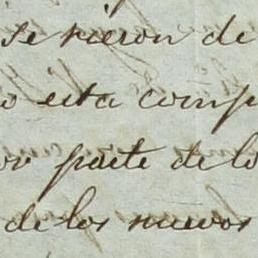 se rieron de
o esta comp
or parte de lo
de los nuevos